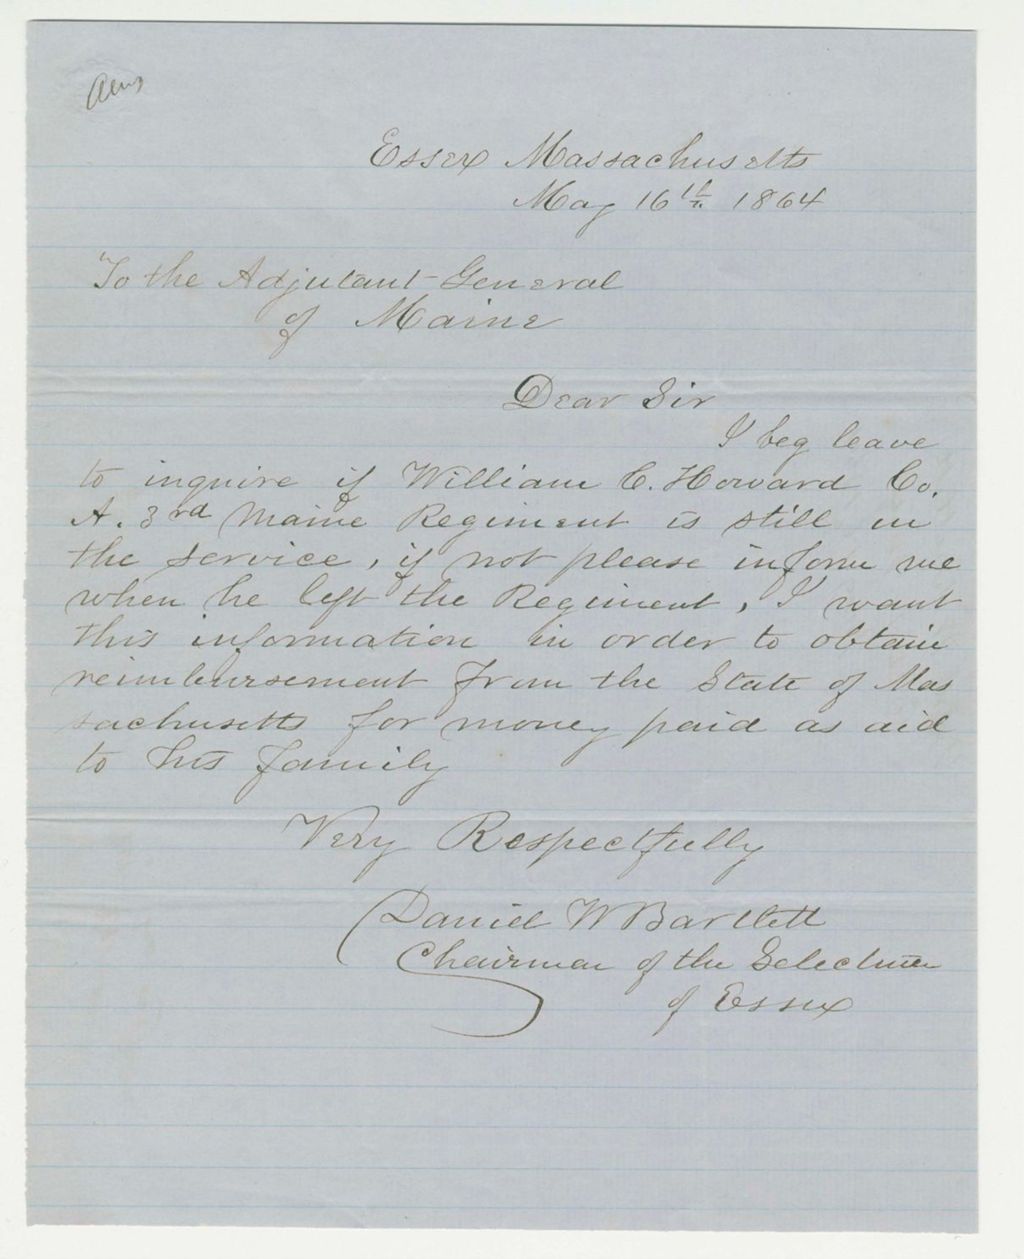 Ans
Essex Massachusetts
May 16th 1864
To the Adjutant General
of Maine
Dear Sir
I beg leave
to inquire if William C. Howard Co.
A. 3rd Maine Regiment is still in
the service, if not please inform me
when he left the Regiment, I want
this information in order to obtain
reimbursement from the State of Mas
sachusetts for money paid as aid
to his family
Very Respectfully
Daniel W Bartlett
Chairman of the Selectmen
of Essex